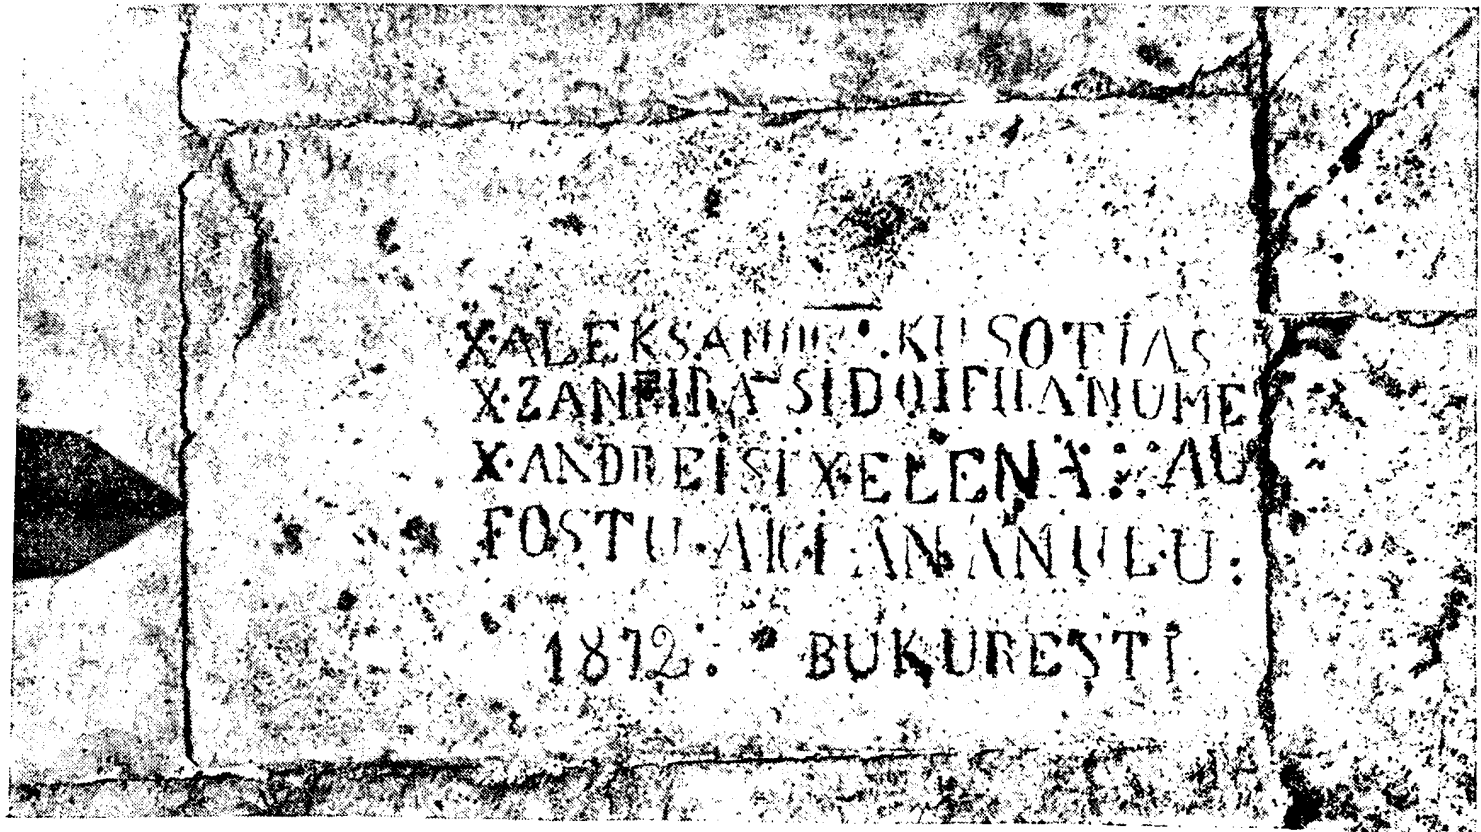 X·ALEKSANDRU·KU SOTIAS
X·ZANFIRA SI DOI FII ANUME
X·ANDREI SI X·ELENA: AU
FOSTU·AICI·AN ANULU:
1872: BUKURESTI